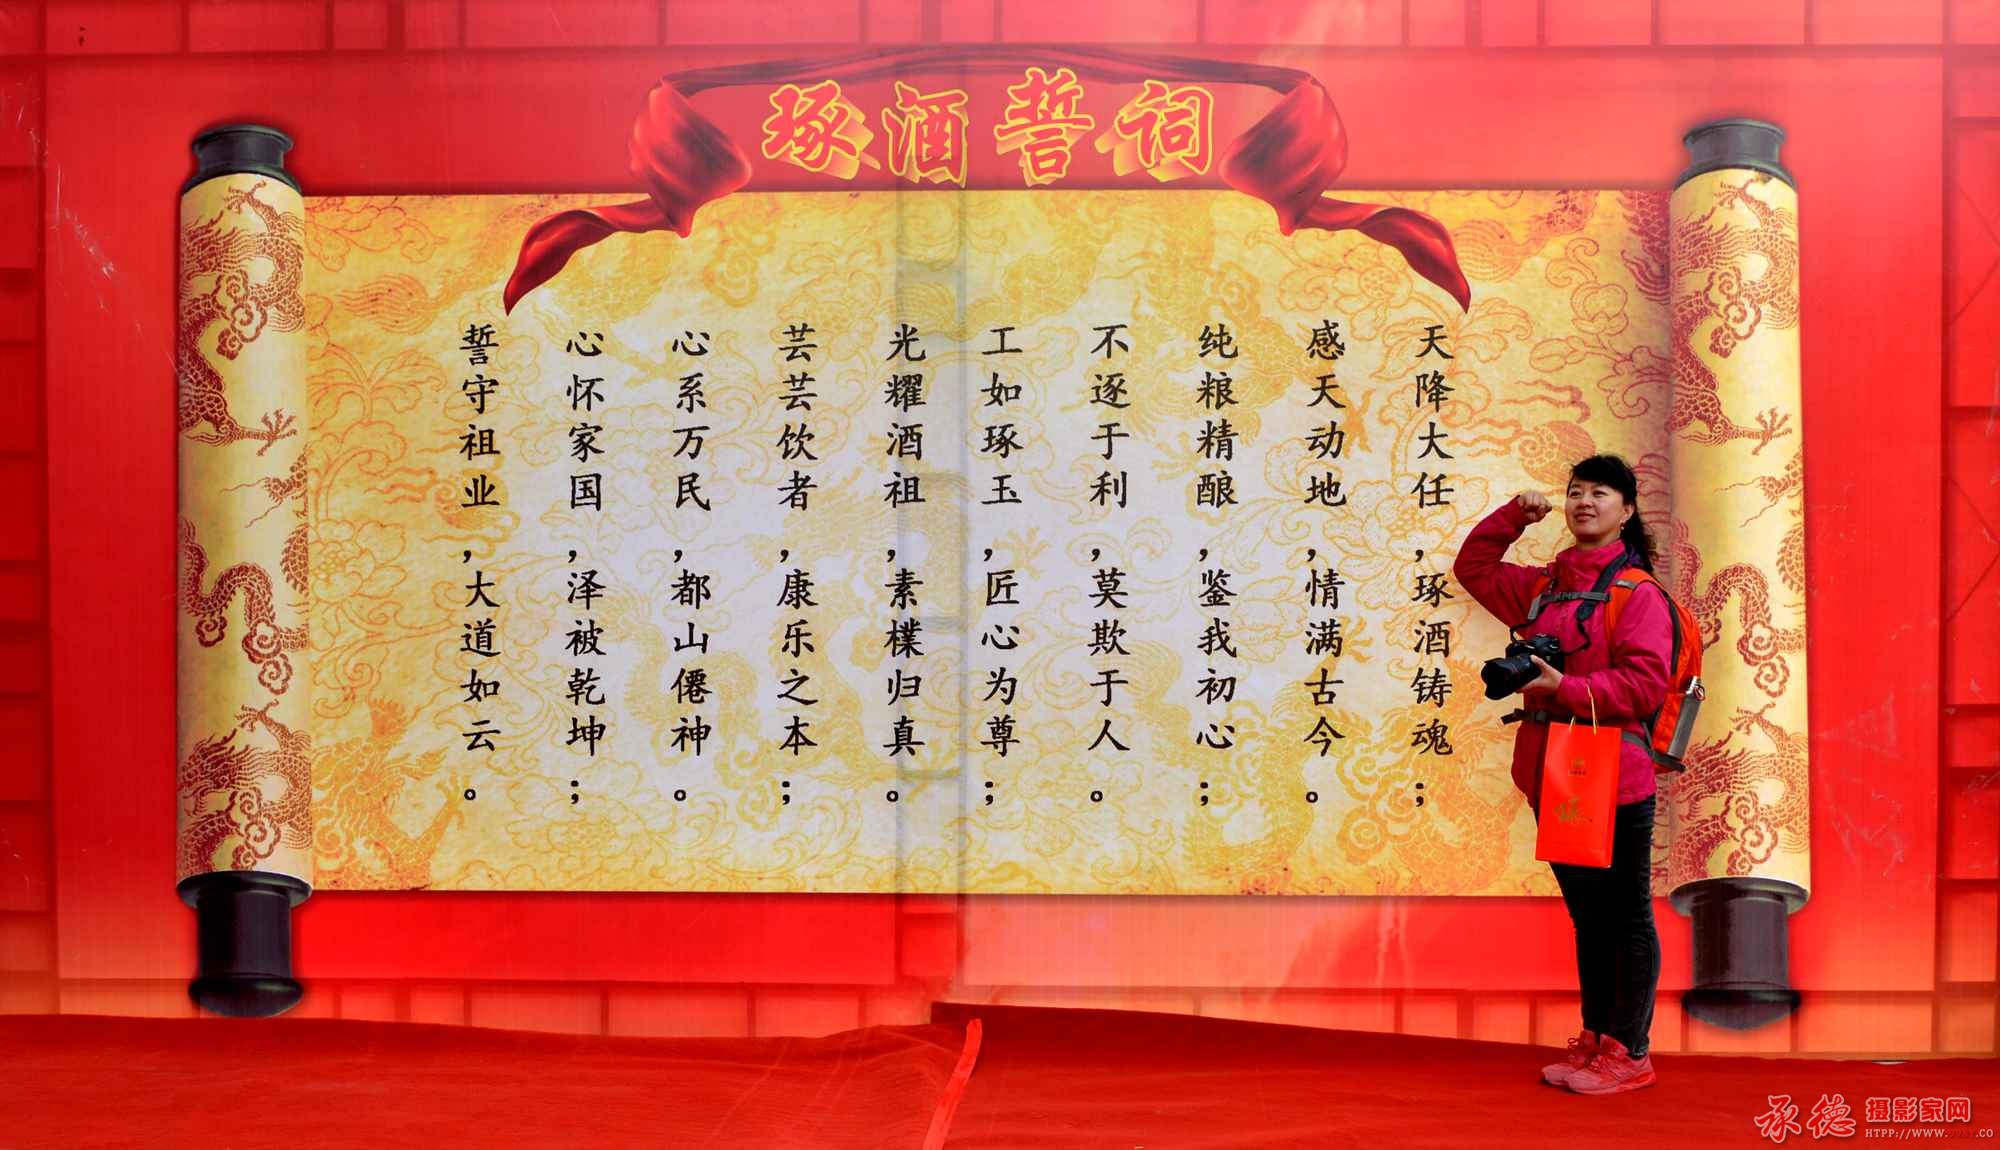 琢酒誓词
天降大任,琢酒铸魂;
感天动地,情满古今。
纯粮精酿,鉴我初心;
不逐于利,莫欺于人。
工如琢玉,匠心为尊;
光耀酒祖,素檏归真。
芸芸饮者,康乐之本;
心系万民,都山僊神。
心怀家国,泽被乾坤;
誓守祖业,大道如云。
承德摄影家网